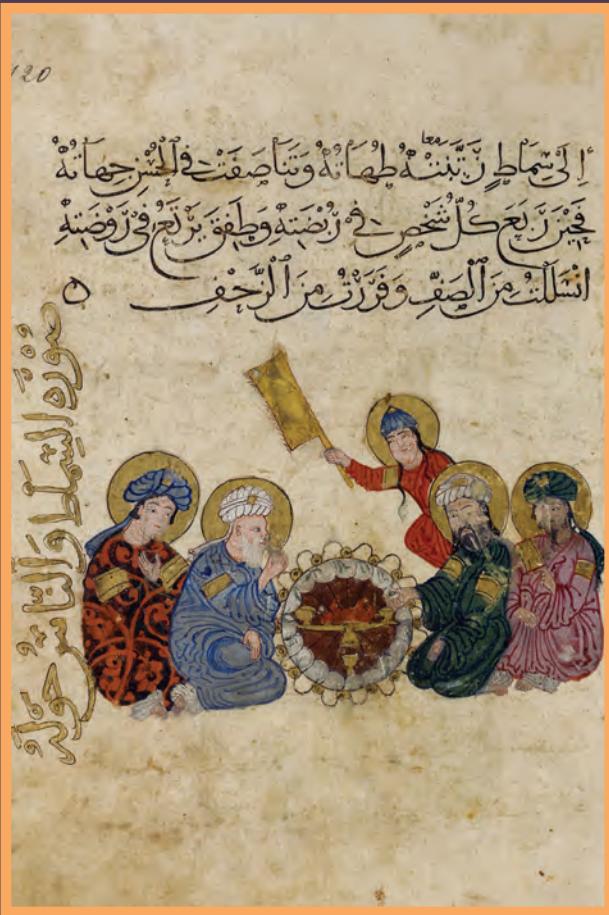 120
معا
إِلَى سِمَاطٍ زَيَّنَتْهُ طُهَاتُهُ وَتَنَاصَفَتْ فِي الْحُسْنِ جِهَاتُهُ
فَحِينَ رَبَعَ كُلُّ شَخْصٍ فِي رُبْضَتِهِ وَطَفِقَ يَرْتَعُ فِي رَوْضَتِهِ
انْسَلَلْتُ مِنَ الصَّفِّ وَفَرَرْتُ مِنَ الزَّحْفِ
صُوْرَةُ السِّمَاطِ وَالنَّاسُ حَوْلَهُ